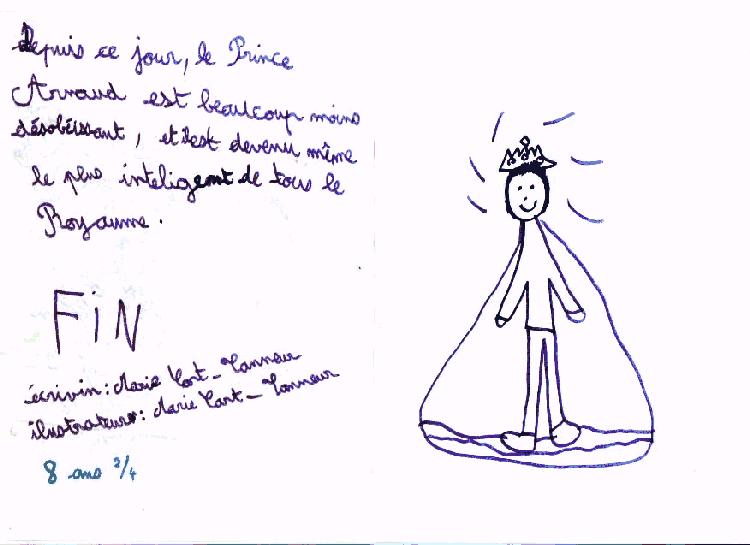 Depuis ce jour, le Prince
Arnaud est beaucoup moins
désobéissant, et il est devenu même
le plus inteligent de tous le
Royaume.
FiN
écrivin: Marie
ilustrateur: Marie
8 ans 3/4